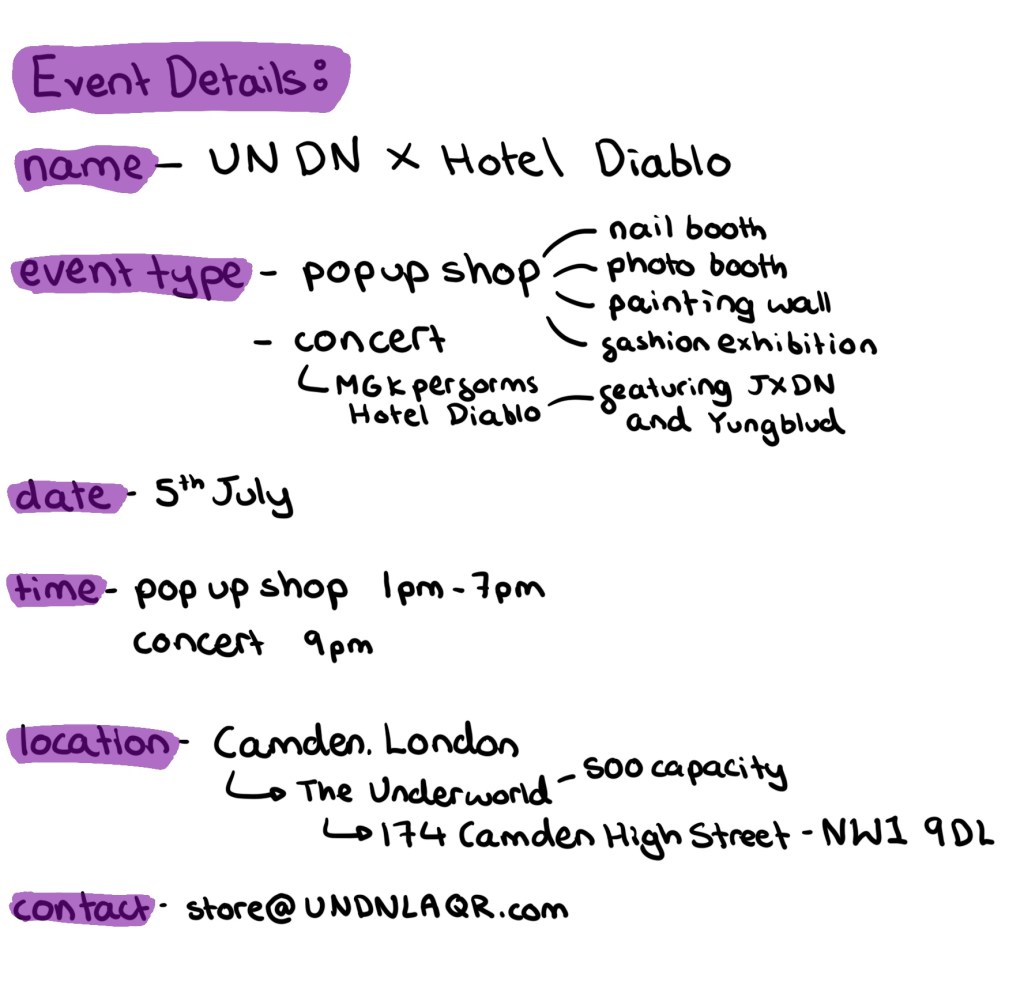 Event Details:
name - UN DN x Hotel Diablo
event type - popup shop
nail booth
photo booth
painting wall
fashion exhibition
- concert
MGK performs
Hotel Diablo
featuring JXDN
and Yungblud
date - 5th July
time - pop up shop 1pm - 7pm
concert 9pm
location - Camden. London
The Underworld - 500 capacity
174 Camden High Street - NW1 9DL
contact - store@UNDNLAQR.com